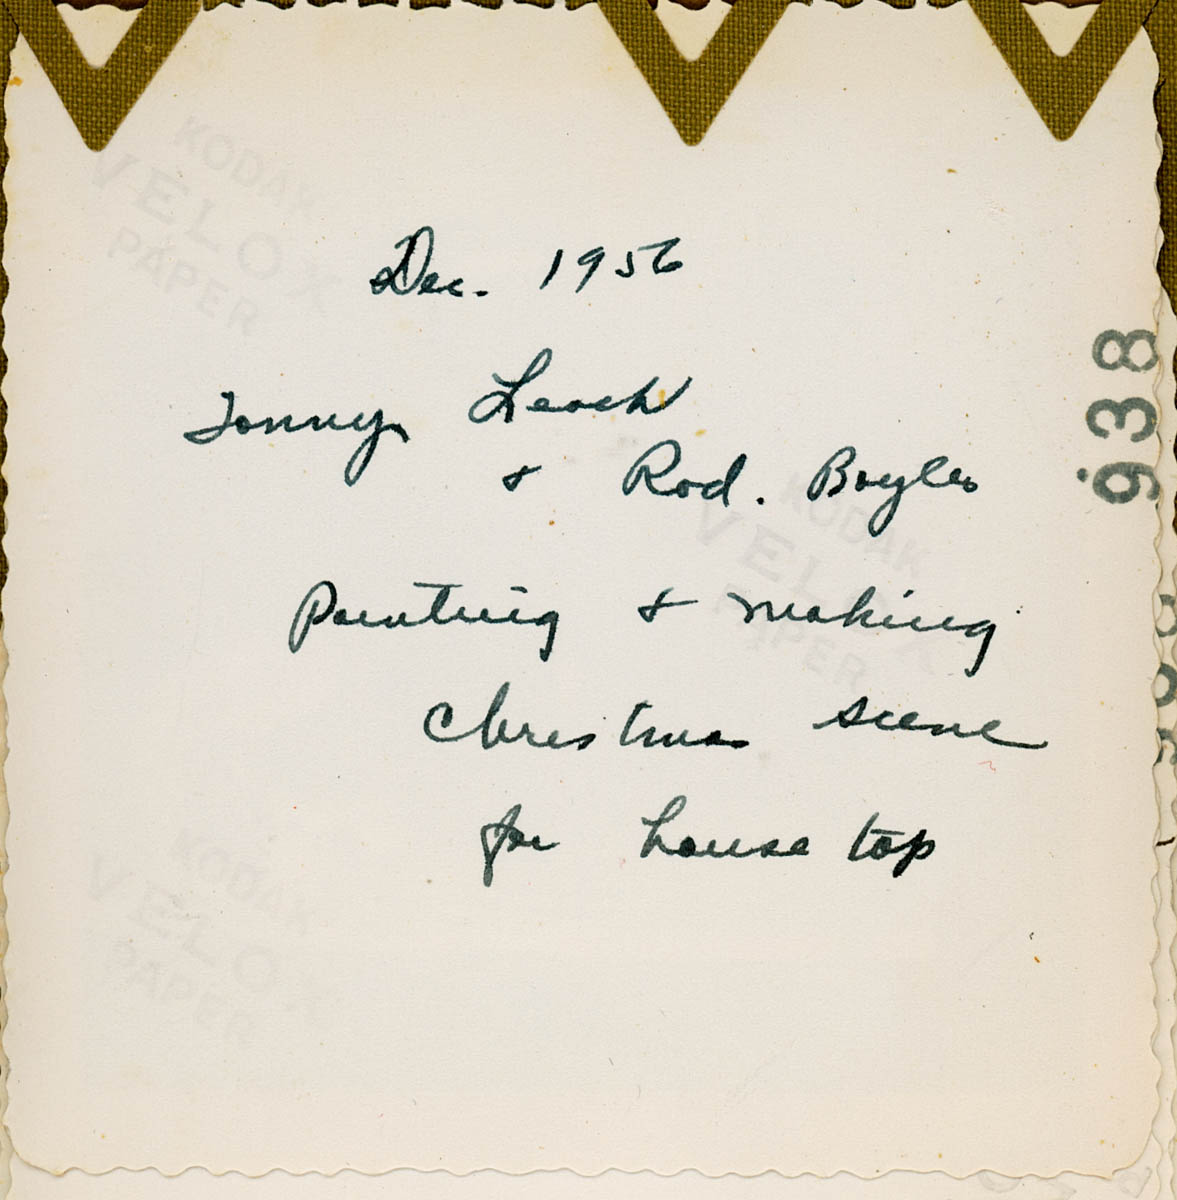 Dec. 1956
Tonny Leach
& Rod. Boyles
Painting & making
Christmas scene
for house top
938
KODAK
VELOX
PAPER
KODAK
VELOX
PAPER
KODAK
VELOX
PAPER